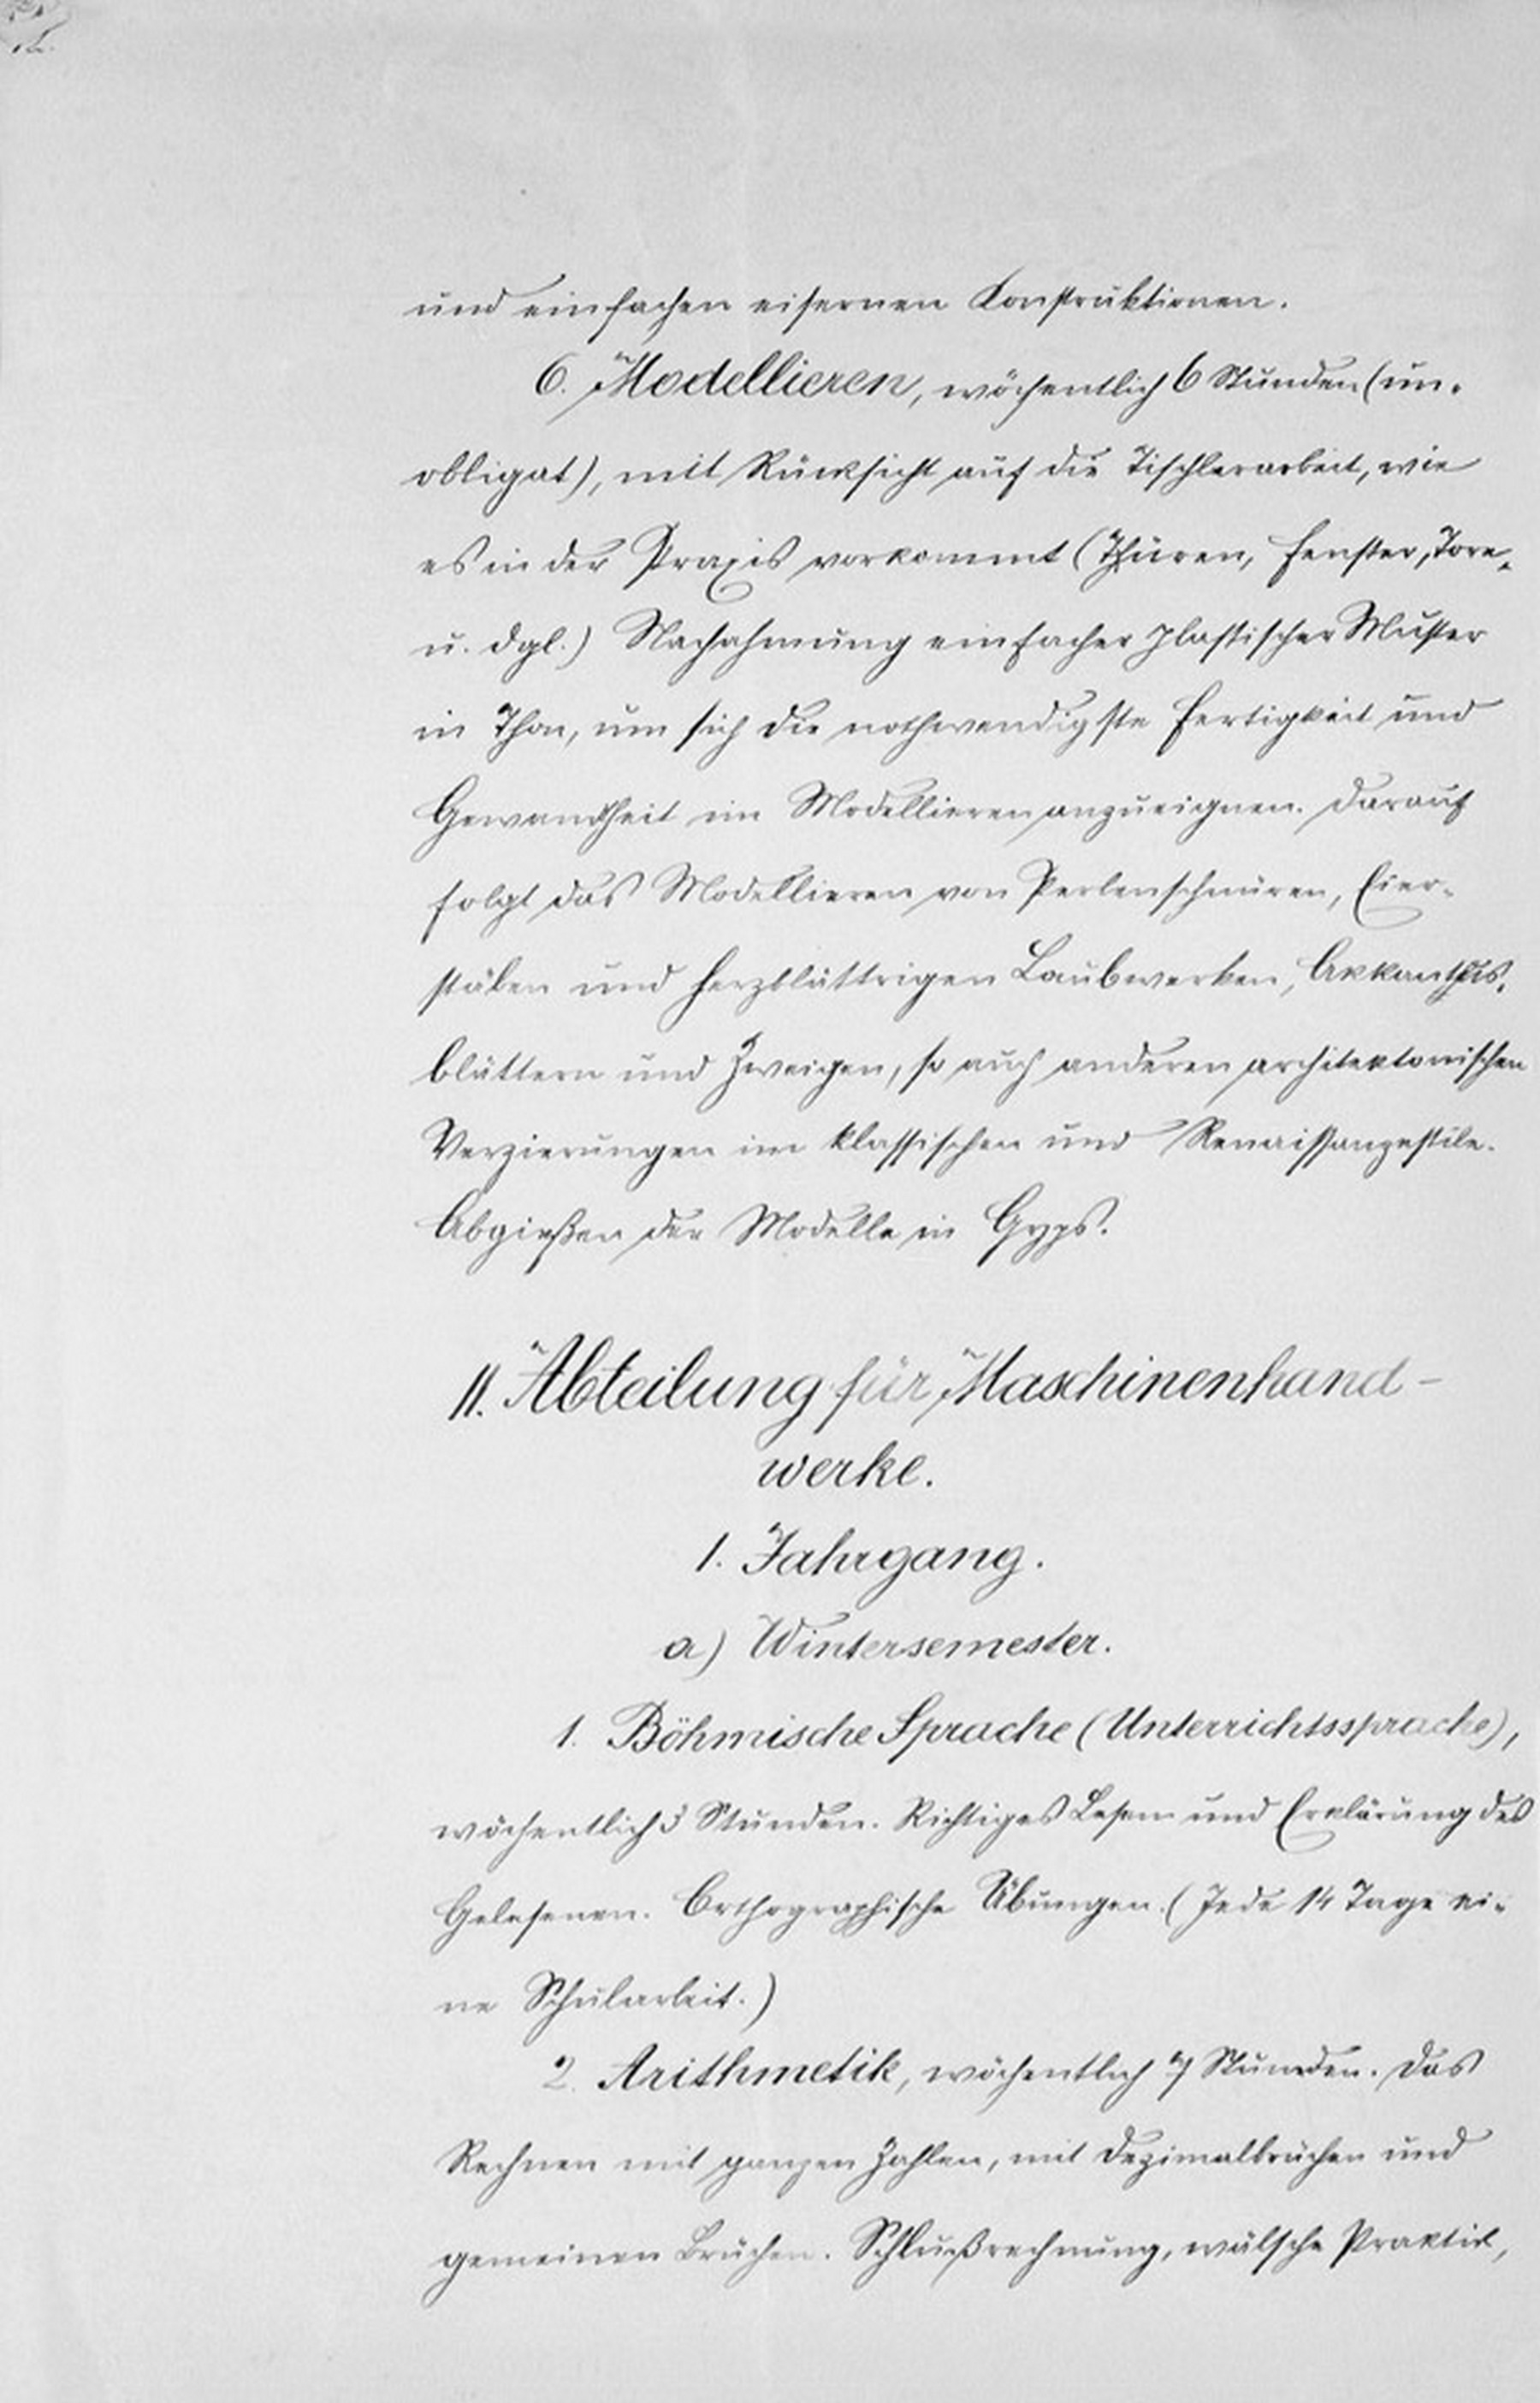 und einfachen eisernen Konstruktionen.
6. Modellieren, wöchentlich 6 Stunden (un-
obligat), mit Rücksicht auf die Tischlerarbeit, wie
es in der Praxis vorkommt (Thüren, Fenster, Tore,
u. dgl.) Nachahmung einfacher plastischer Muster
in Thon, um sich die nothwendigste Fertigkeit und
Gewandtheit im Modellieren anzueignen. Darauf
folgt das Modellieren von Perlenschnüren, Eier-
stäben und herzblättrigen Laubwerken, Akkanthus-
blättern und Zweigen, so auch anderen architektonischen
Verzierungen im klassischen und Renaissanzestile.
Abgießen der Modelle in Gyps.
II. Abteilung für Maschinenhand-
werke.
1. Jahrgang.
a) Wintersemester.
1. Böhmische Sprache (Unterrichtssprache),
wöchentlich 3 Stunden. Richtiges Lesen und Erklärung des
Gelesenen. Orthographische Übungen. (Jede 14 Tage ei-
ne Schularbeit.)
2. Arithmetik, wöchentlich 7 Stunden. Das
Rechnen mit ganzen Zahlen, mit Dezimalbrüchen und
gemeinen Brüchen. Schlußrechnung, wälsche Praktik,